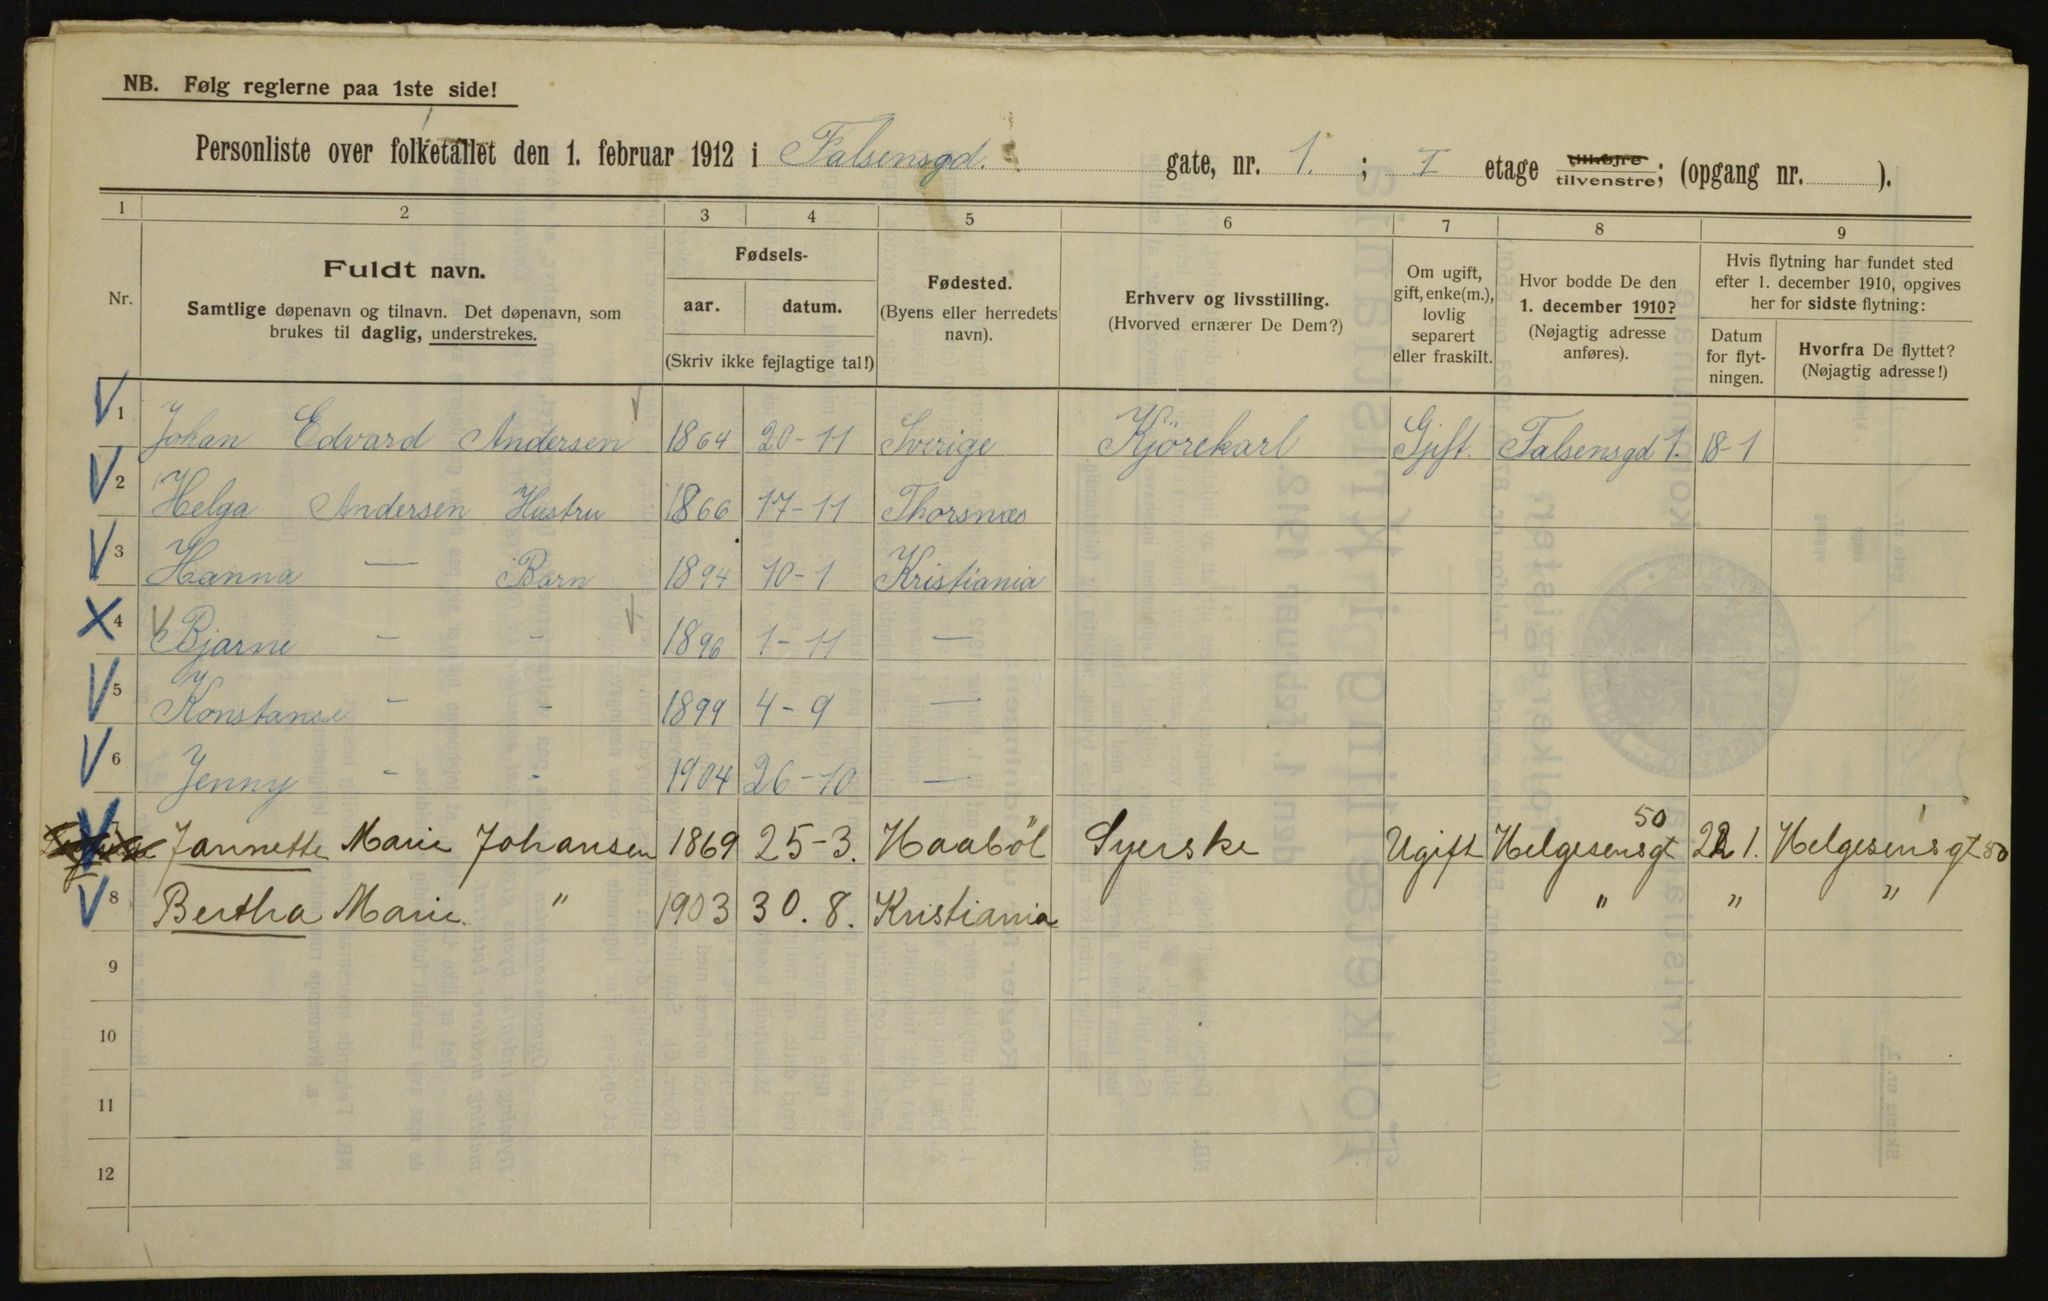 NB. Følg reglerne paa 1ste side!
Personliste over folketallet den 1. februar 1912 i Falsensgd. gate, nr. 1. ; I etage tilhøjre tilvenstre; (opgang nr. ).
1 2 3 4 5 6 7 8 9
Nr.
Fuldt navn.
Samtlige døpenavn og tilnavn. Det døpenavn, som
brukes til daglig, understrekes.
Fødsels-
aar. datum.
(Skriv ikke fejlagtige tal!)
Fødested.
(Byens eller herredets
navn).
Erhverv og livsstilling.
(Hvorved ernærer De Dem?)
Om ugift,
gift, enke(m.),
lovlig
separert
eller fraskilt.
Hvor bodde De den
1. december 1910?
(Nøjagtig adresse
anføres).
Hvis flytning har fundet sted
efter 1. december 1910, opgives
her for sidste flytning:
Datum
for flyt-
ningen.
Hvorfra De flyttet?
(Nøjagtig adresse!)
1 Johan Edvard Andersen 1864 20-11 Sverige Kjörekarl Gift. Falsensgd 1. 18-1
2 Helga Andersen Hustru 1866 17-11 Thorsnæs
3 Hanna — Barn 1894 10-1 Kristiania
4 Bjarne - - 1896 1-11 —
5 Konstanse - - 1899 4-9 —
6 Jenny - - 1904 26-10 —
7 Jannette Marie Johansen 1869 25-3. Haaböl Syerske Ugift Helgesensgt 50 22 1. Helgesensgt 50
8 Bertha Marie " 1903 30. 8. Kristiania " " "
9
10
11
12